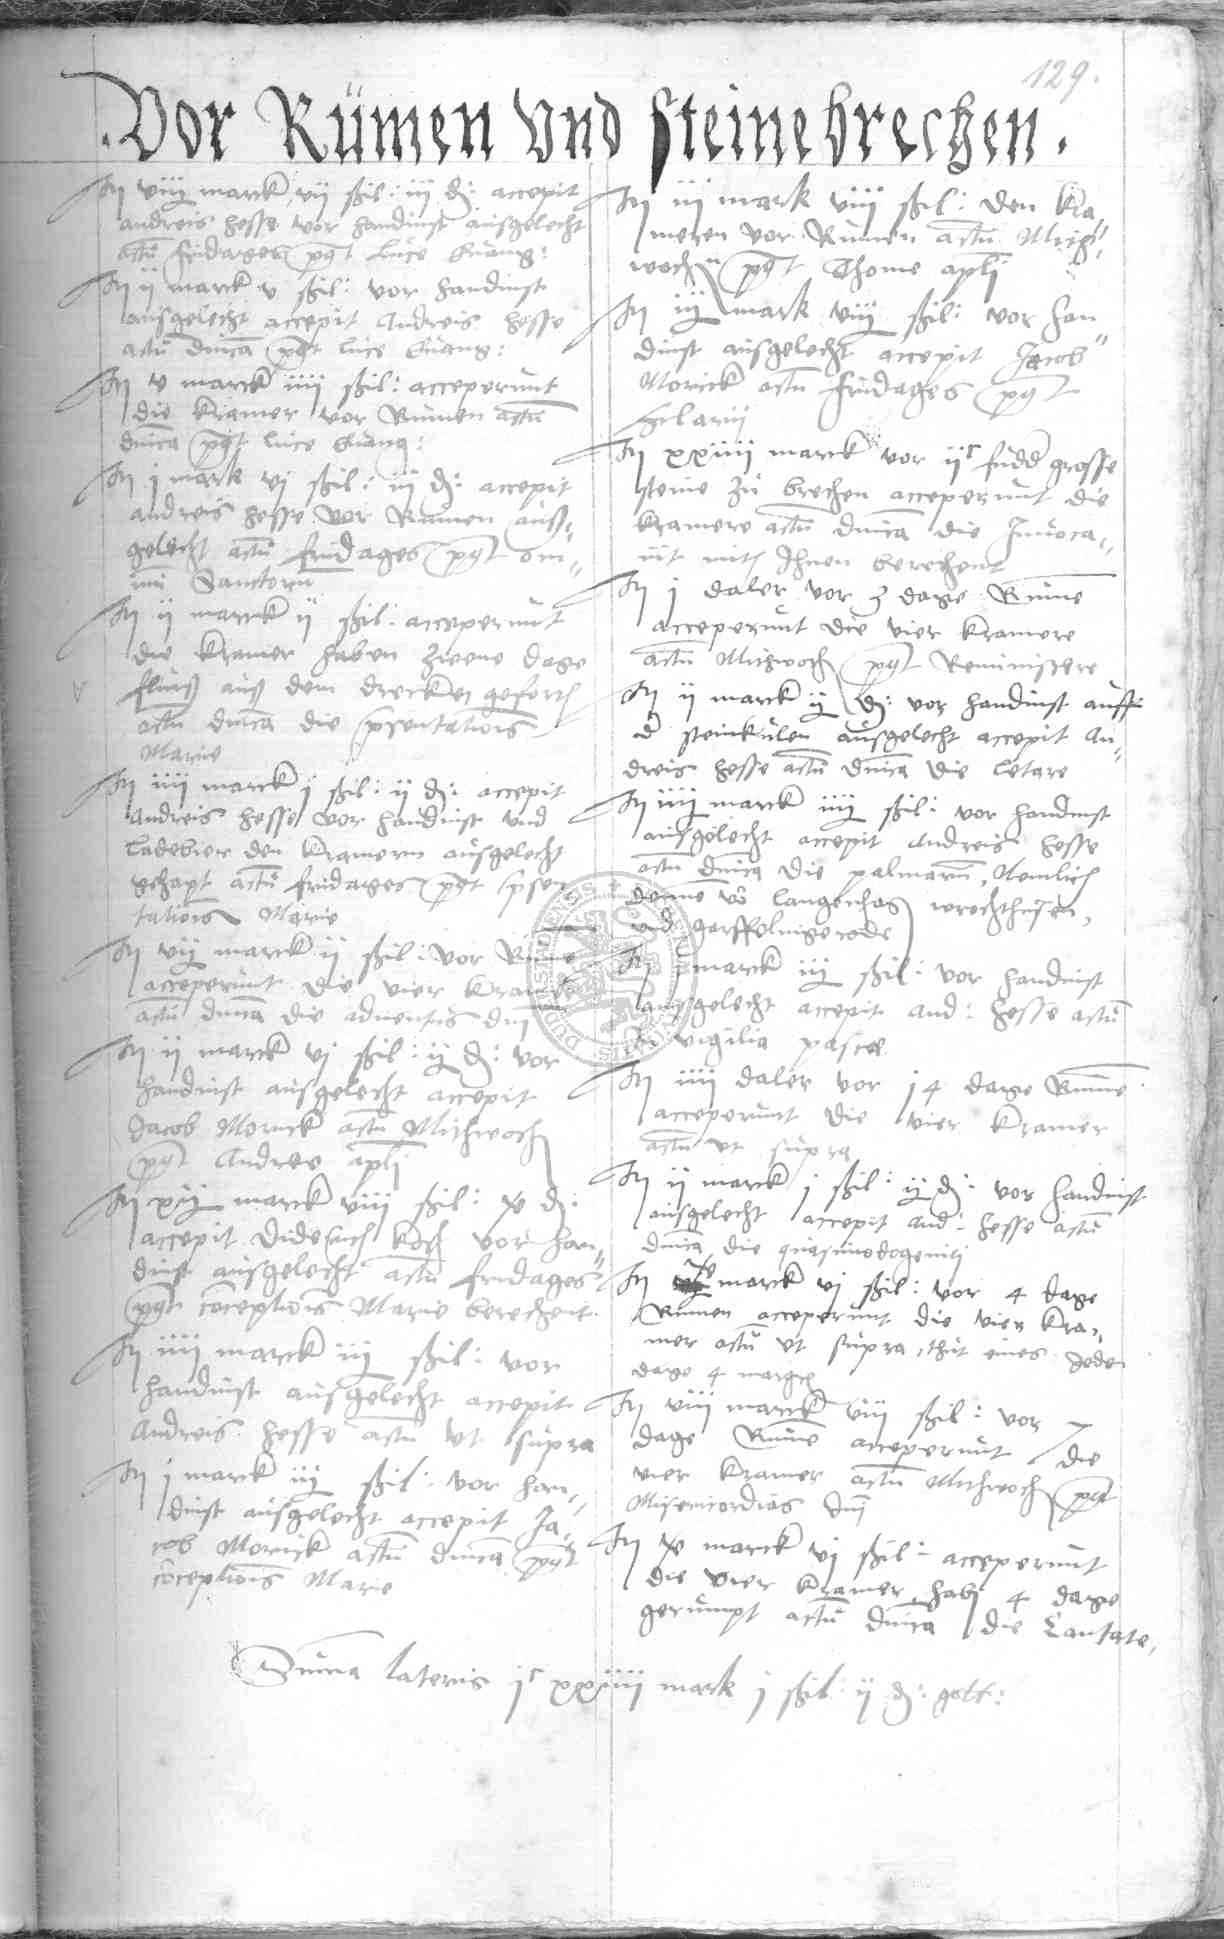 129.
Vor Rümen vnd steinebrechen.
It viij marck vij ßil: iij d: accepit
andreis hesse vor handinst ausgelecht
actu fridages pt Luce Euang:
It ij marck v ßil: vor handinst
ausgelecht accepit Andreis hesse
actu dnica pt Luce Euang:
It v marck iiij ßil: acceperunt
die kramer vor Rumen actu
dnica pt Luce Euang:
It j mark vj ßil: iij d: accepit
andreis hesse vor Rumen auss-
gelecht actu fridages pt om-
niu Sanctoru
It ij marck ij ßil: acceperunt
die kramer haben zwene dage
aus dem drecke geforth
actu dnica die psentationis
Marie
It iiij marck j ßil: ij d: accepit
Andreis hesse vor handinst vnd
ladebier den kramern ausgelecht
gehapt actu fridages pt psen
tationis Marie
It vij marck ij ßil: vor Rume
acceperunt die vier kramer
actu dnica die aduentus dni
It ij marck vj ßil: ij d: vor
handinst ausgelecht accepit
Jacob Morick actu Mithwoch
pt Andree apli
It xij marck viij ßil: x d:
accepit Diderich koch vor han-
dinst ausgelecht actu fridages
pt coceptiois Marie berechent
It iiij marck iij ßil: vor
handinst ausgelecht accepit
Andreis hesse actu vt supra
It j marck iij ßil: vor han-
dinst ausgelecht accepit Ja-
cob Morick actu dnica pt
coceptionis Marie
It iij mark viij ßil: den kra-
meren vor Rumen actu Mit-
wochn pt Thome apli
It iij mark viij ßil: vor han
dinst ausgelecht accepit Jacob
Morick actu fridages pt
Hilarii
It xxiiij marck vor ijc fuder grosse
steine zu brechen acceperunt die
kramere actu dnica die Inuoca-
uit mit Ihnen berechent
It j daler vor 3 dage Rume
acceperunt die vier kramere
actu Mithwoch pt Reminiscere
It ij marck ij d: vor handinst auff
d steinkulen ausgelecht accepit An-
dreis hesse actu dnica die letare
It iiij marck iiij ßil: vor handinst
ausgelecht accepit Andreis hesse
actu dnica die palmaru, Nemlich
denne vo langenhag wrechthusen,
vnd
It marck iij ßil: vor handinst
ausgelecht accepit And: hesse actu
In vigilia pasce
It iiij daler vor 14 dage Rume
acceperunt die vier kramer
actu vt supra
It ij marck j ßil: ij d: vor handinst
ausgelecht accepit And: hesse actu
dnica die quasimodogeniti
It x marck vj ßil: vor 4 dage
Rumen acceperunt die vier kra-
mer actu vt supra, thut eines jeden
dage 4 margen
It viij marck viij ßil: vor 7
dage Rume acceperunt die
vier kramer actu Mithwoch pt
Misericordias dni
It x marck vj ßil: acceperunt
die vier kramer, hab 4 dage
gerumpt actu dnica die Cantate.
Suma lateris jc xxiiij mark j ßil: ij d: gott: